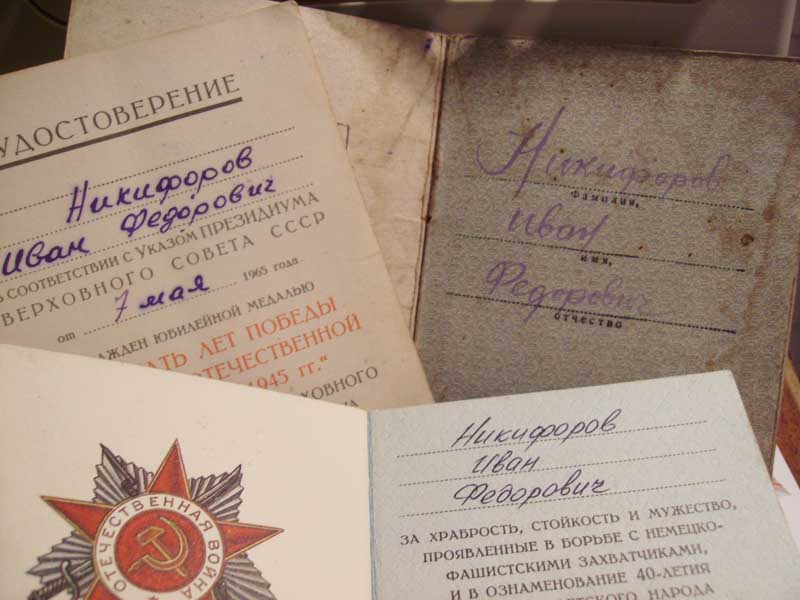 УДОСТОВЕРЕНИЕ
Никифоров
Иван Федорович
В СООТВЕТСТВИИ С УКАЗОМ ПРЕЗИДИУМА
ВЕРХОВНОГО СОВЕТА СССР
от 7 мая 1965 года
ЮБИЛЕЙНОЙ МЕДАЛЬЮ
ЛЕТ ПОБЕДЫ
ОТЕЧЕСТВЕННОЙ
1945 гг."
Никифоров
Фамилия,
Иван
имя,
Федорович
отчество
ОТЕЧЕСТВЕННАЯ ВОЙНА
Никифоров
Иван
Федорович
ЗА ХРАБРОСТЬ, СТОЙКОСТЬ И МУЖЕСТВО,
ПРОЯВЛЕННЫЕ В БОРЬБЕ С НЕМЕЦКО-
ФАШИСТСКИМИ ЗАХВАТЧИКАМИ,
И В ОЗНАМЕНОВАНИЕ 40-ЛЕТИЯ
НАРОДА